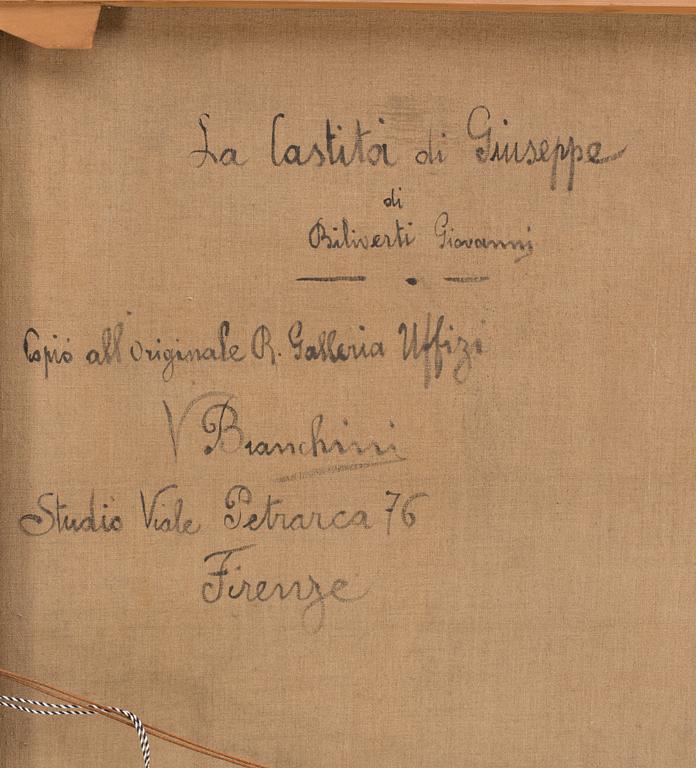 La Castità di Giuseppe
di
Biliverti Giovanni
Copiò all'Originale R. Galleria Uffizi
V Bianchini
Studio Viale Petrarca 76
Firenze